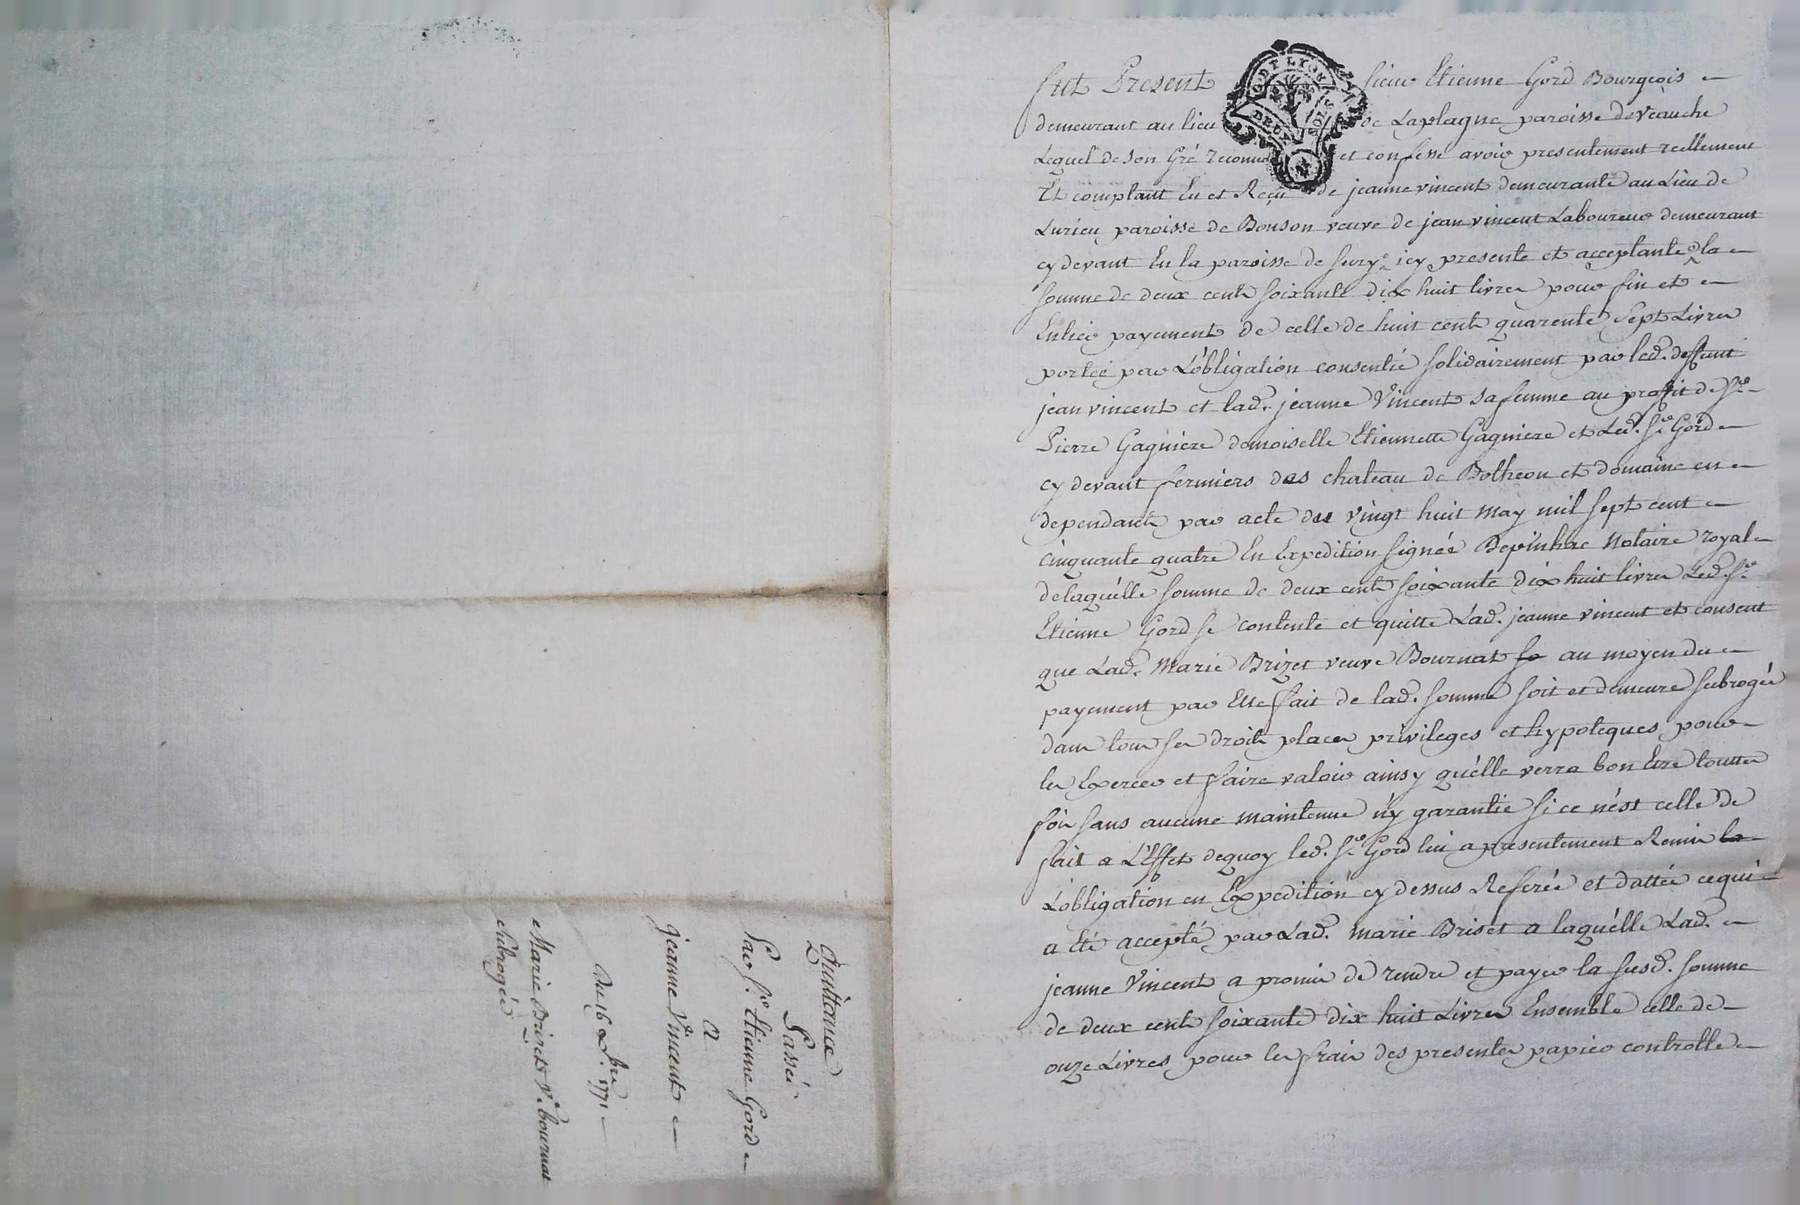 Quittance
Passée
Par Sr. Etienne Gord
a
jeanne Vincent
Du 16 1771
Marie Brizet Ve. bournat
subrogée
GEN DE LYON
DEUX SOLS
Fut Present sieur Etienne Gord Bourgeois
demeurant au lieu de Laplagne paroisse de Veauche
Lequel de son Gré reconnu et confesse avoir presentement reellement
Et comptant Eu et Reçu de jeanne vincent demeurante au Lieu de
Lurieu paroisse de Bonson veuve de jean vincent Laboureur demeurant
cy devant En la paroisse de icy presente et acceptante la
somme de deux cents soixante dix huit livres pour fin et
Entier payement de celle de huit cents quarente sept Livres
portée par L'obligation consentie solidairement par led. deffunt
jean vincent et lad. jeanne Vincent sa femme au profit de Sr.
Pierre Gagniere demoiselle Etiennette Gagniere et Led. Sr. Gord
cy devant fermiers des chateau de Botheon et domaine en
dependants par acte du vingt huit may mil sept cent
cinquante quatre En Expedition signée Notaire royal
de laquélle somme de deux cents soixante dix huit livres Led. Sr.
Etienne Gord se contente et quitte Lad. jeanne vincent et consent
que Lad. Marie Brizet veuve Bournat au moyen du
payement par Elle fait de lad. somme soit et demeure subrogée
dans tous ses droits places privileges et hypoteques pour
les Exercer et faire valoir ainsy qu'élle verra bon Etre touttes
fois sans aucune maintenue n'y garantie si ce n'est celle de
fait a L'Effet dequoy led. Sr. Gord lui a presentement Remis la
L'obligation en Expedition cy dessus Referée et dattée ce qui
a Eté accepté par Lad. Marie Briset a laquélle Lad.
jeanne Vincent a promis de rendre et payer la susd. somme
de deux cents soixante dix huit Livres Ensemble celle de
onze Livres pour les frais des presentes papier controlle